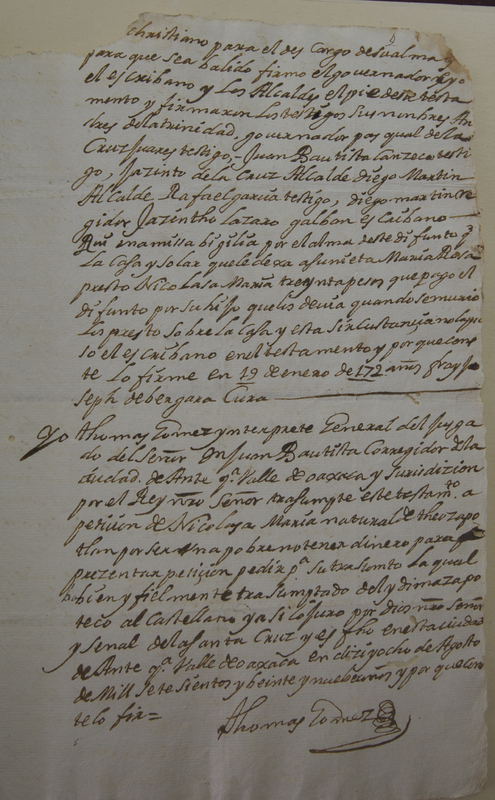 christiano para el des Cargo desualma y
para que sea balido firmo el governador y yo
el esCribano y Los Alcaldes el pie deste testa
mento y firmaron Los testigos sus nonbres An
dres delatrinidad, governador pasqual dela
Cruz Juares testigo, Juan Bautista Canzeco testi
go, Jazinto de la Cruz Alcalde Diego Martin
Alcalde Rafael garcia testigo, diego martin Re
gidor Jazintho Lazaro galban esCribano
una missa bigilia por el alma deste difunto
La Casa y solar quele dexa asunieta Maria Rosa
presto Nicolasa Maria treynta pesos que pago el
difunto por su hijo quelos devia quando semurio
Los presto sobre la Casa y esta sircustancia no la pu
so el esCribano enel testamento y por que cons
te Lo firme en 19 de enero de 172 años fray Jo
seph de bergara Cura
Yo thomas Gomez ynterprete General del Juzga
do del Señor Dn Juan Bautista Corregidor de la
ciudad de Ante qa. Valle de oaxaca y Juridizion
por el Rey nro Señor trasumpte este testamto. a
petision de Nicolasa Maria natural de theozapo
tlan por ser una pobre no tener dinero para
prezentar petision pedir pa. su trasumto La qual
bien y fielmente trasumptado del ydioma zapo
teco al Castellano y asi lo Juro por dios nro señor
y señal de la santa Cruz y es fho en esta ciudad
de Ante qa. Valle de oaxaca en diziyocho de Agosto
de Mill setesientos y beinte y nuebe años y por que cons
te lo fir=
thomas Gomez